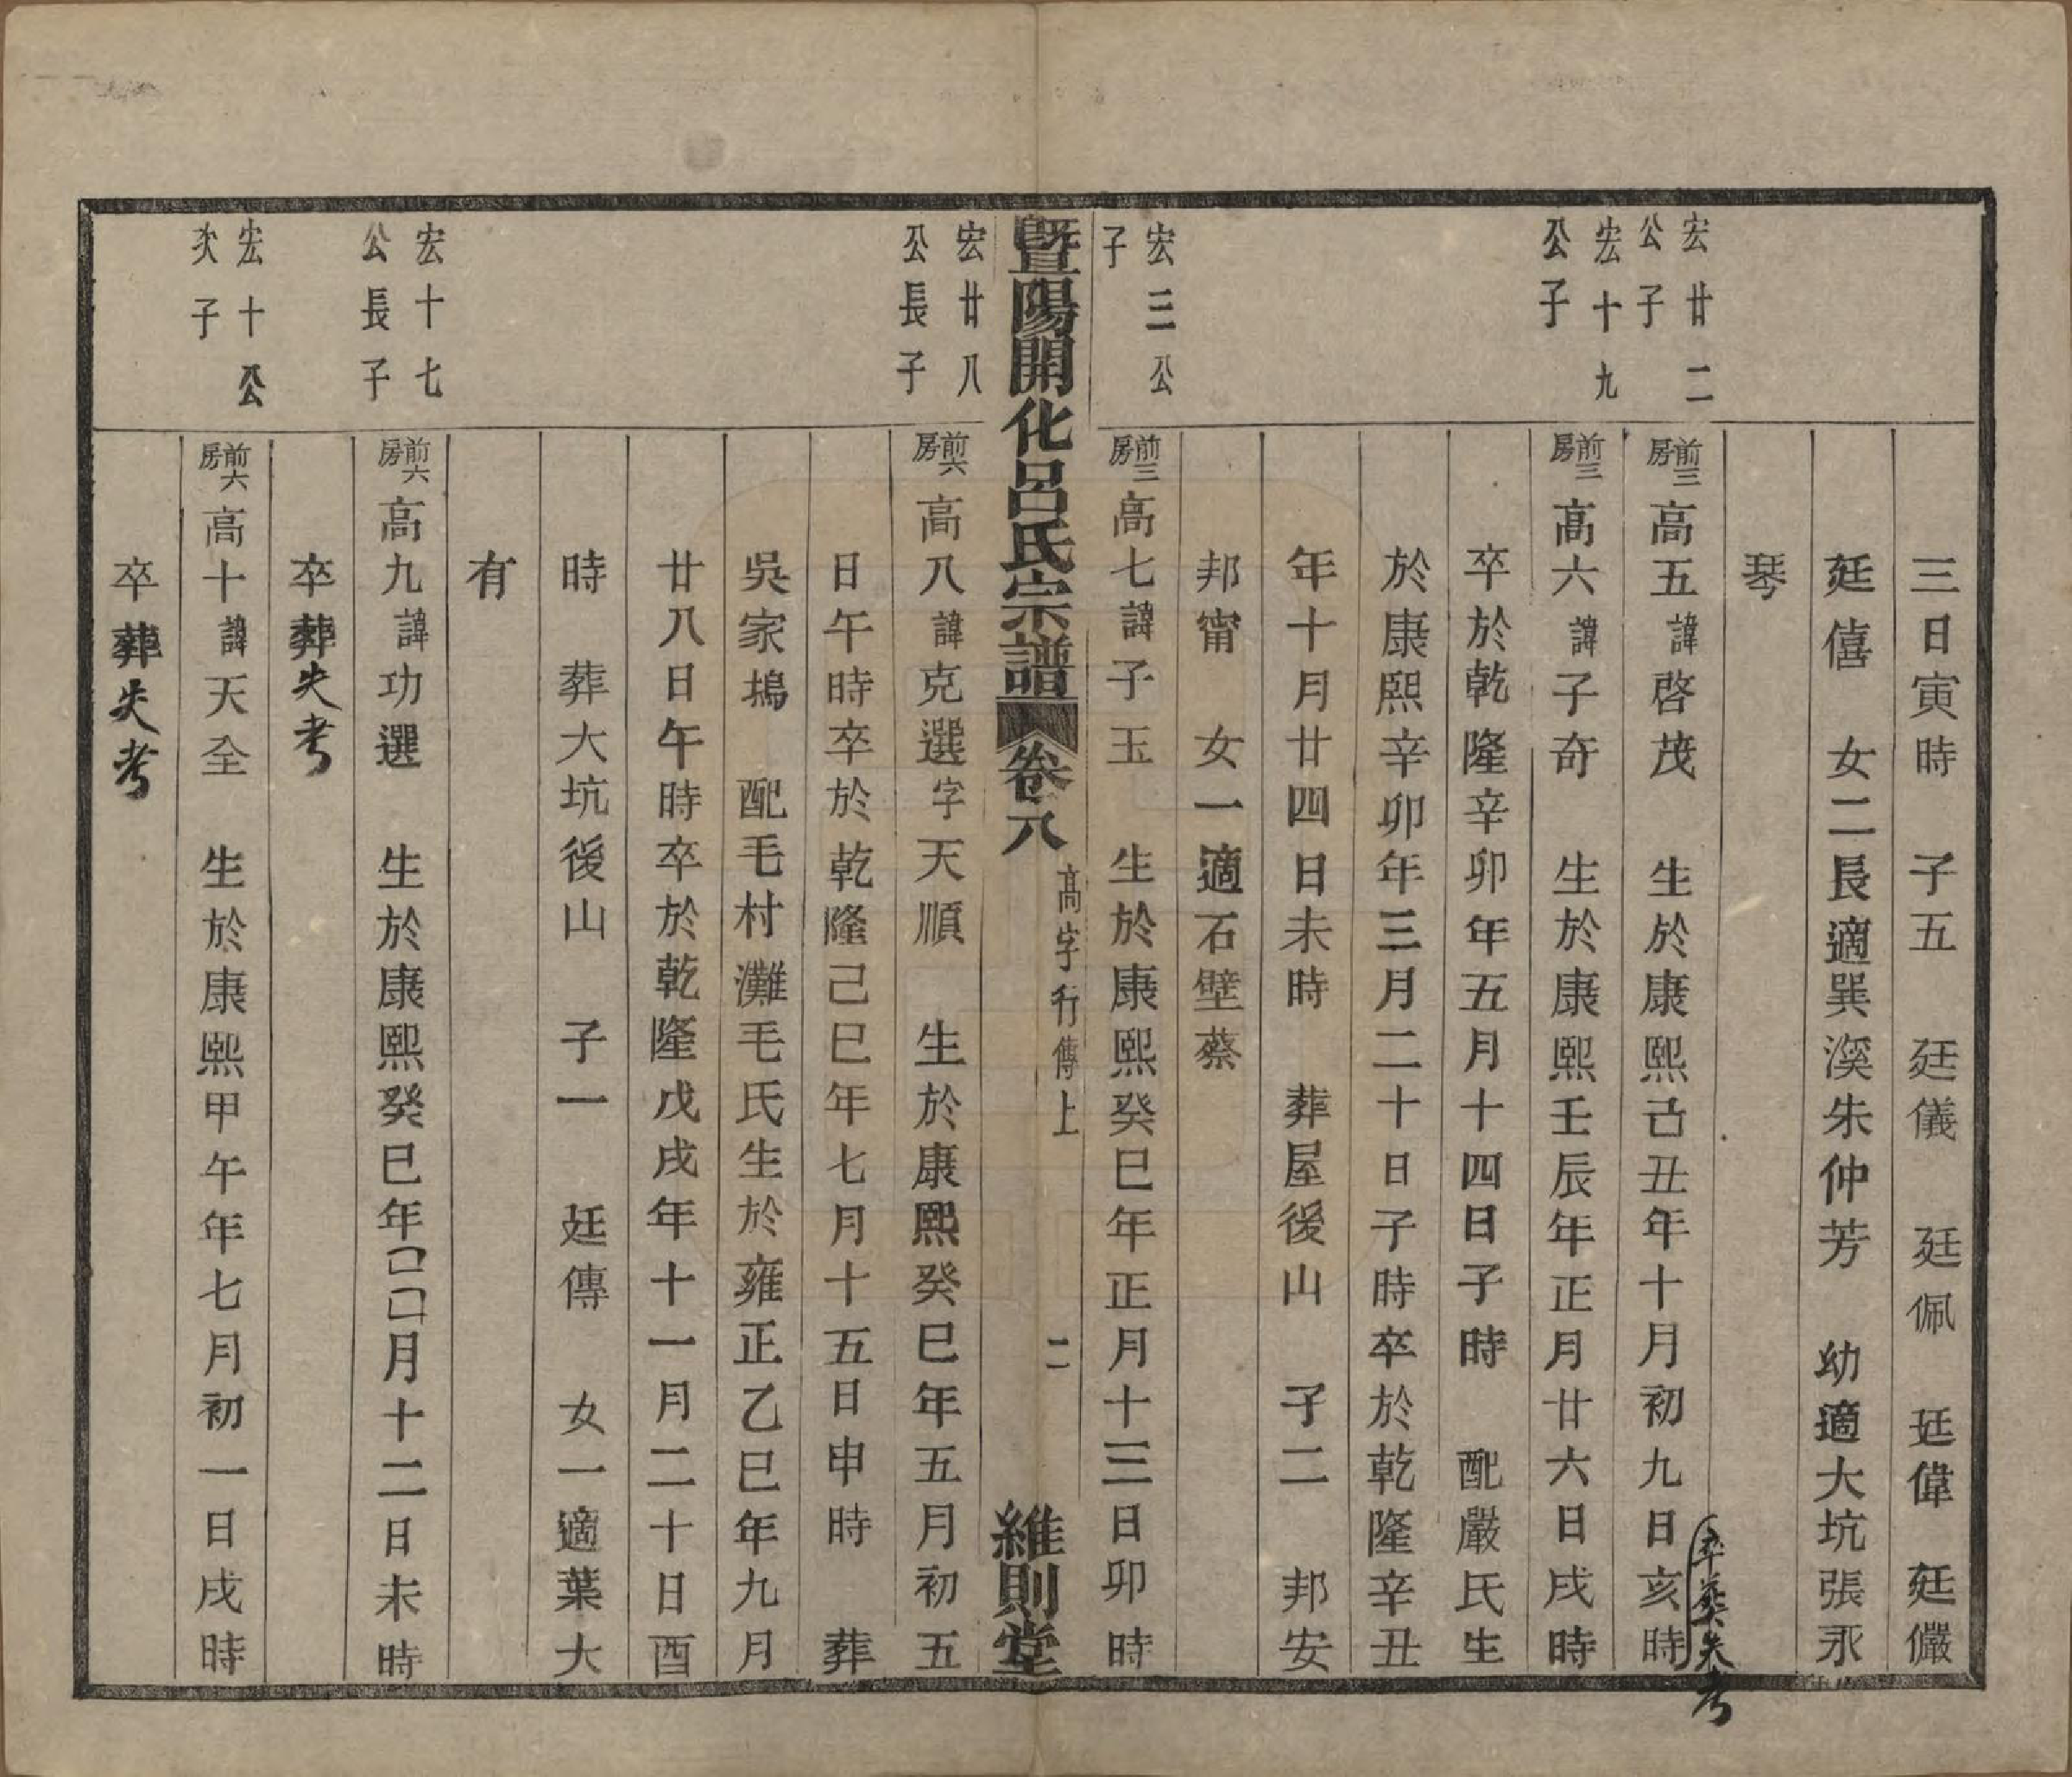 三日寅時　子五　廷儀　廷佩　廷偉　廷儼
廷僖　女二長適巽溪朱仲芳　幼適大坑張永
琴
宏廿二公子
前三房高五諱啓茂　生於康熙己丑年十月初九日亥時
卒葬失考
宏十九公子
前三房高六諱子奇　生於康熙壬辰年正月廿六日戌時
卒於乾隆辛卯年五月十四日子時　配嚴氏生
於康熙辛卯年三月二十日子時卒於乾隆辛丑
年十月廿四日未時　葬屋後山　子二　邦安
邦甯　女一適石壁蔡
宏三公子
前三房高七諱子玉　生於康熙癸巳年正月十三日卯時
暨陽開化呂氏宗譜　卷八　高字行傳上　二　維則堂
宏廿八公長子
前六房高八諱克選字天順　生於康熙癸巳年五月初五
日午時卒於乾隆己巳年七月十五日申時　葬
吳家塢　配毛村灘毛氏生於雍正乙巳年九月
廿八日午時卒於乾隆戊戌年十一月二十日酉
時　葬大坑後山　子一　廷傳　女一適葉大
有
宏十七公長子
前六房高九諱功選　生於康熙癸巳年口口月十二日未時
卒葬失考
宏十公次子
前六房高十諱天全　生於康熙甲午年七月初一日戌時
卒葬失考